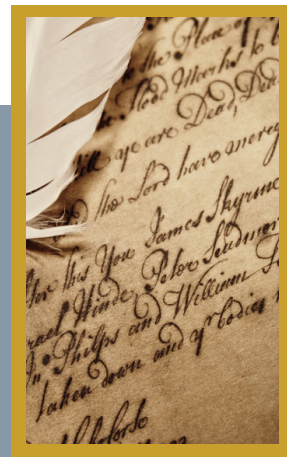 the Place of
the Flood Marks to b
till ye are Dead, Dead
the Lord have mercy
After this You James Skyrme
rael Hinde, Peter Scudmor
Jnº Philps and William
taken down and yʳ bodies